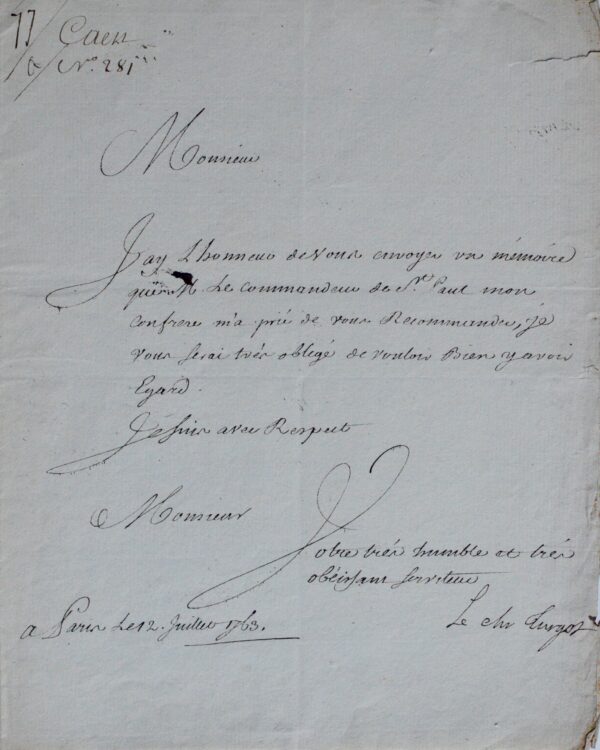 77 Caen
N.º 281
Monsieur
J'ay L'honneur de vous envoyer un mémoire
que M. Le commandeur de S.t Paul mon
confrere m'a prié de vous Recommander, je
vous serai trés obligé de vouloir Bien y avoir
Egard.
Je suis avec Respect
Monsieur
Votre trés humble et trés
obéissant serviteur
a Paris Le 12. Juillet 1763.
Le chr Turgot